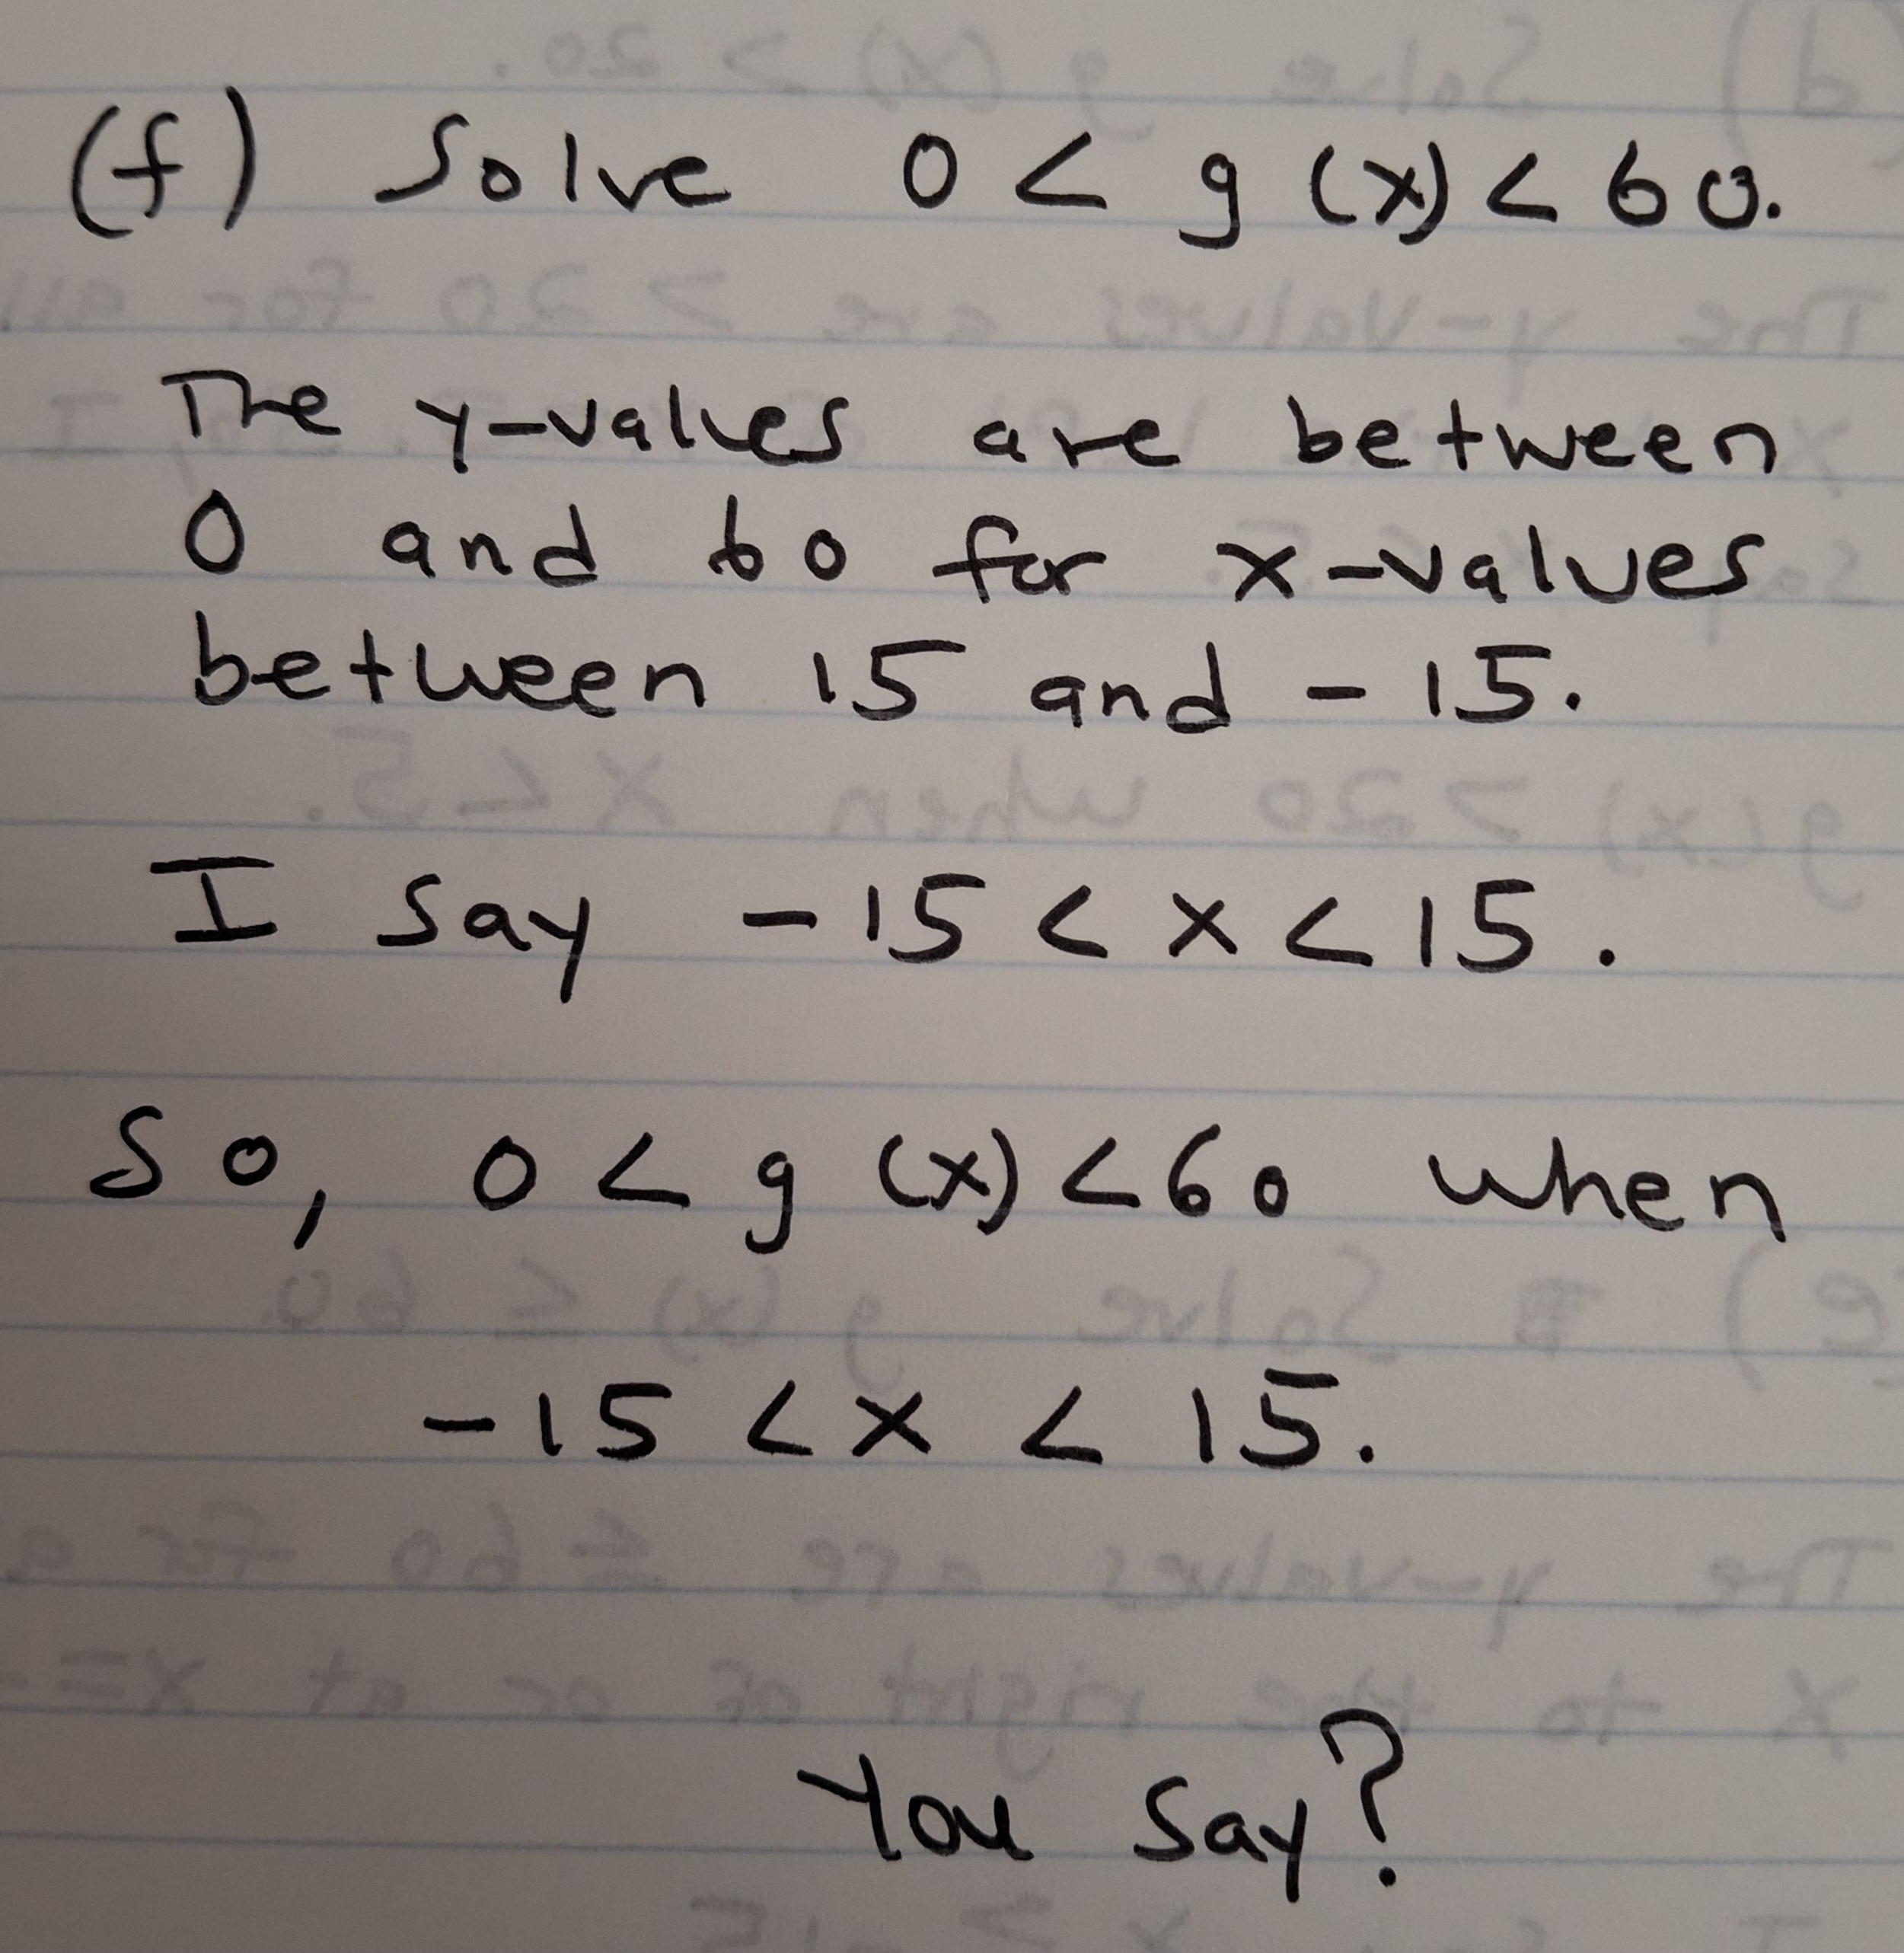 (f) Solve 0 < g (x) < 60.
The y-values are between
0 and 60 for x-values
between 15 and -15.
I say -15 < x < 15.
So, 0 < g (x) < 60 when
-15 < x < 15.
You say?